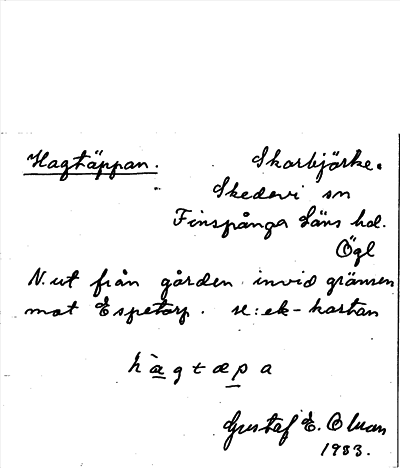 Hagtäppan. Skarbjörke.
Skedevi sn
Finspånga Läns hd.
Ögl
N. ut från gården invid gränsen
mot Espetorp. se: ek-kartan
hagtæpa
Gustaf E. Olsson
1983.